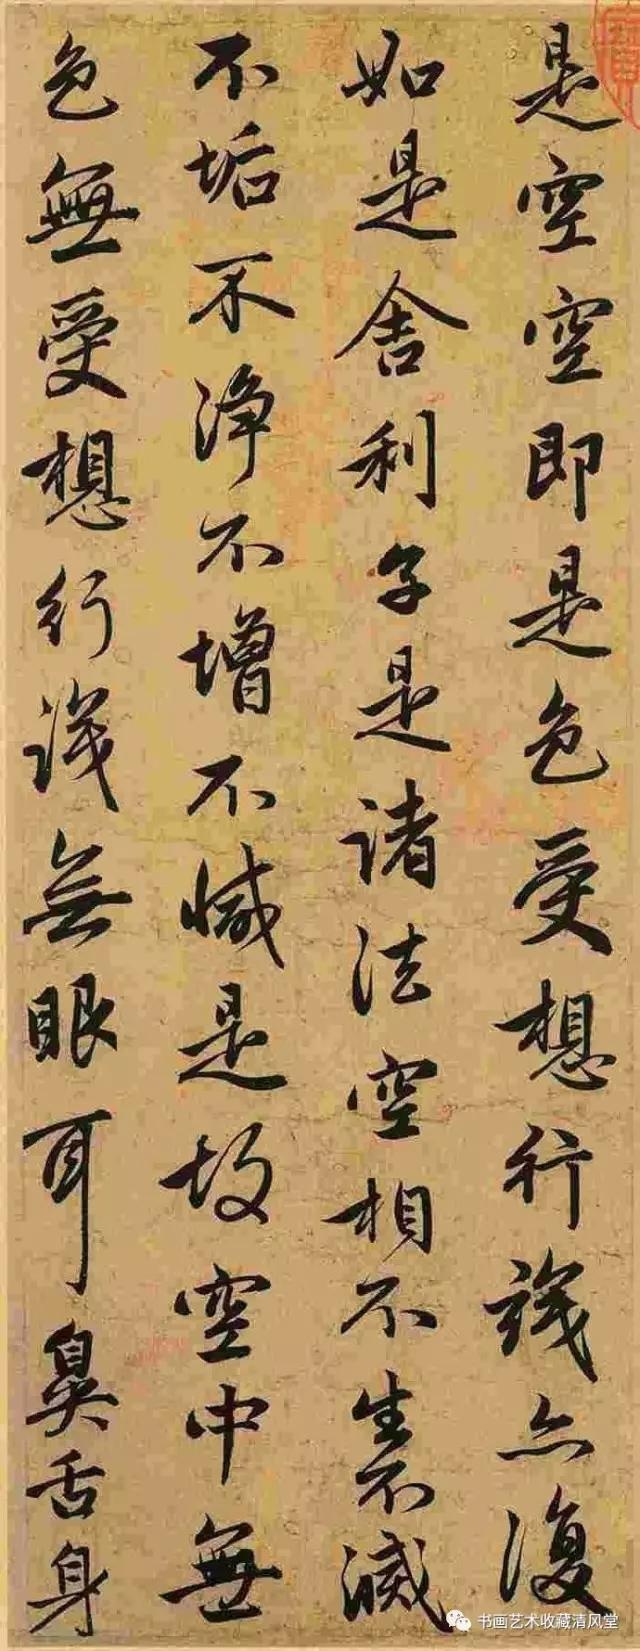 是空空即是色受想行識亦復
如是舍利子是諸法空相不生不滅
不垢不淨不增不減是故空中無
色無受想行識無眼耳鼻舌身
书画艺术收藏清风堂